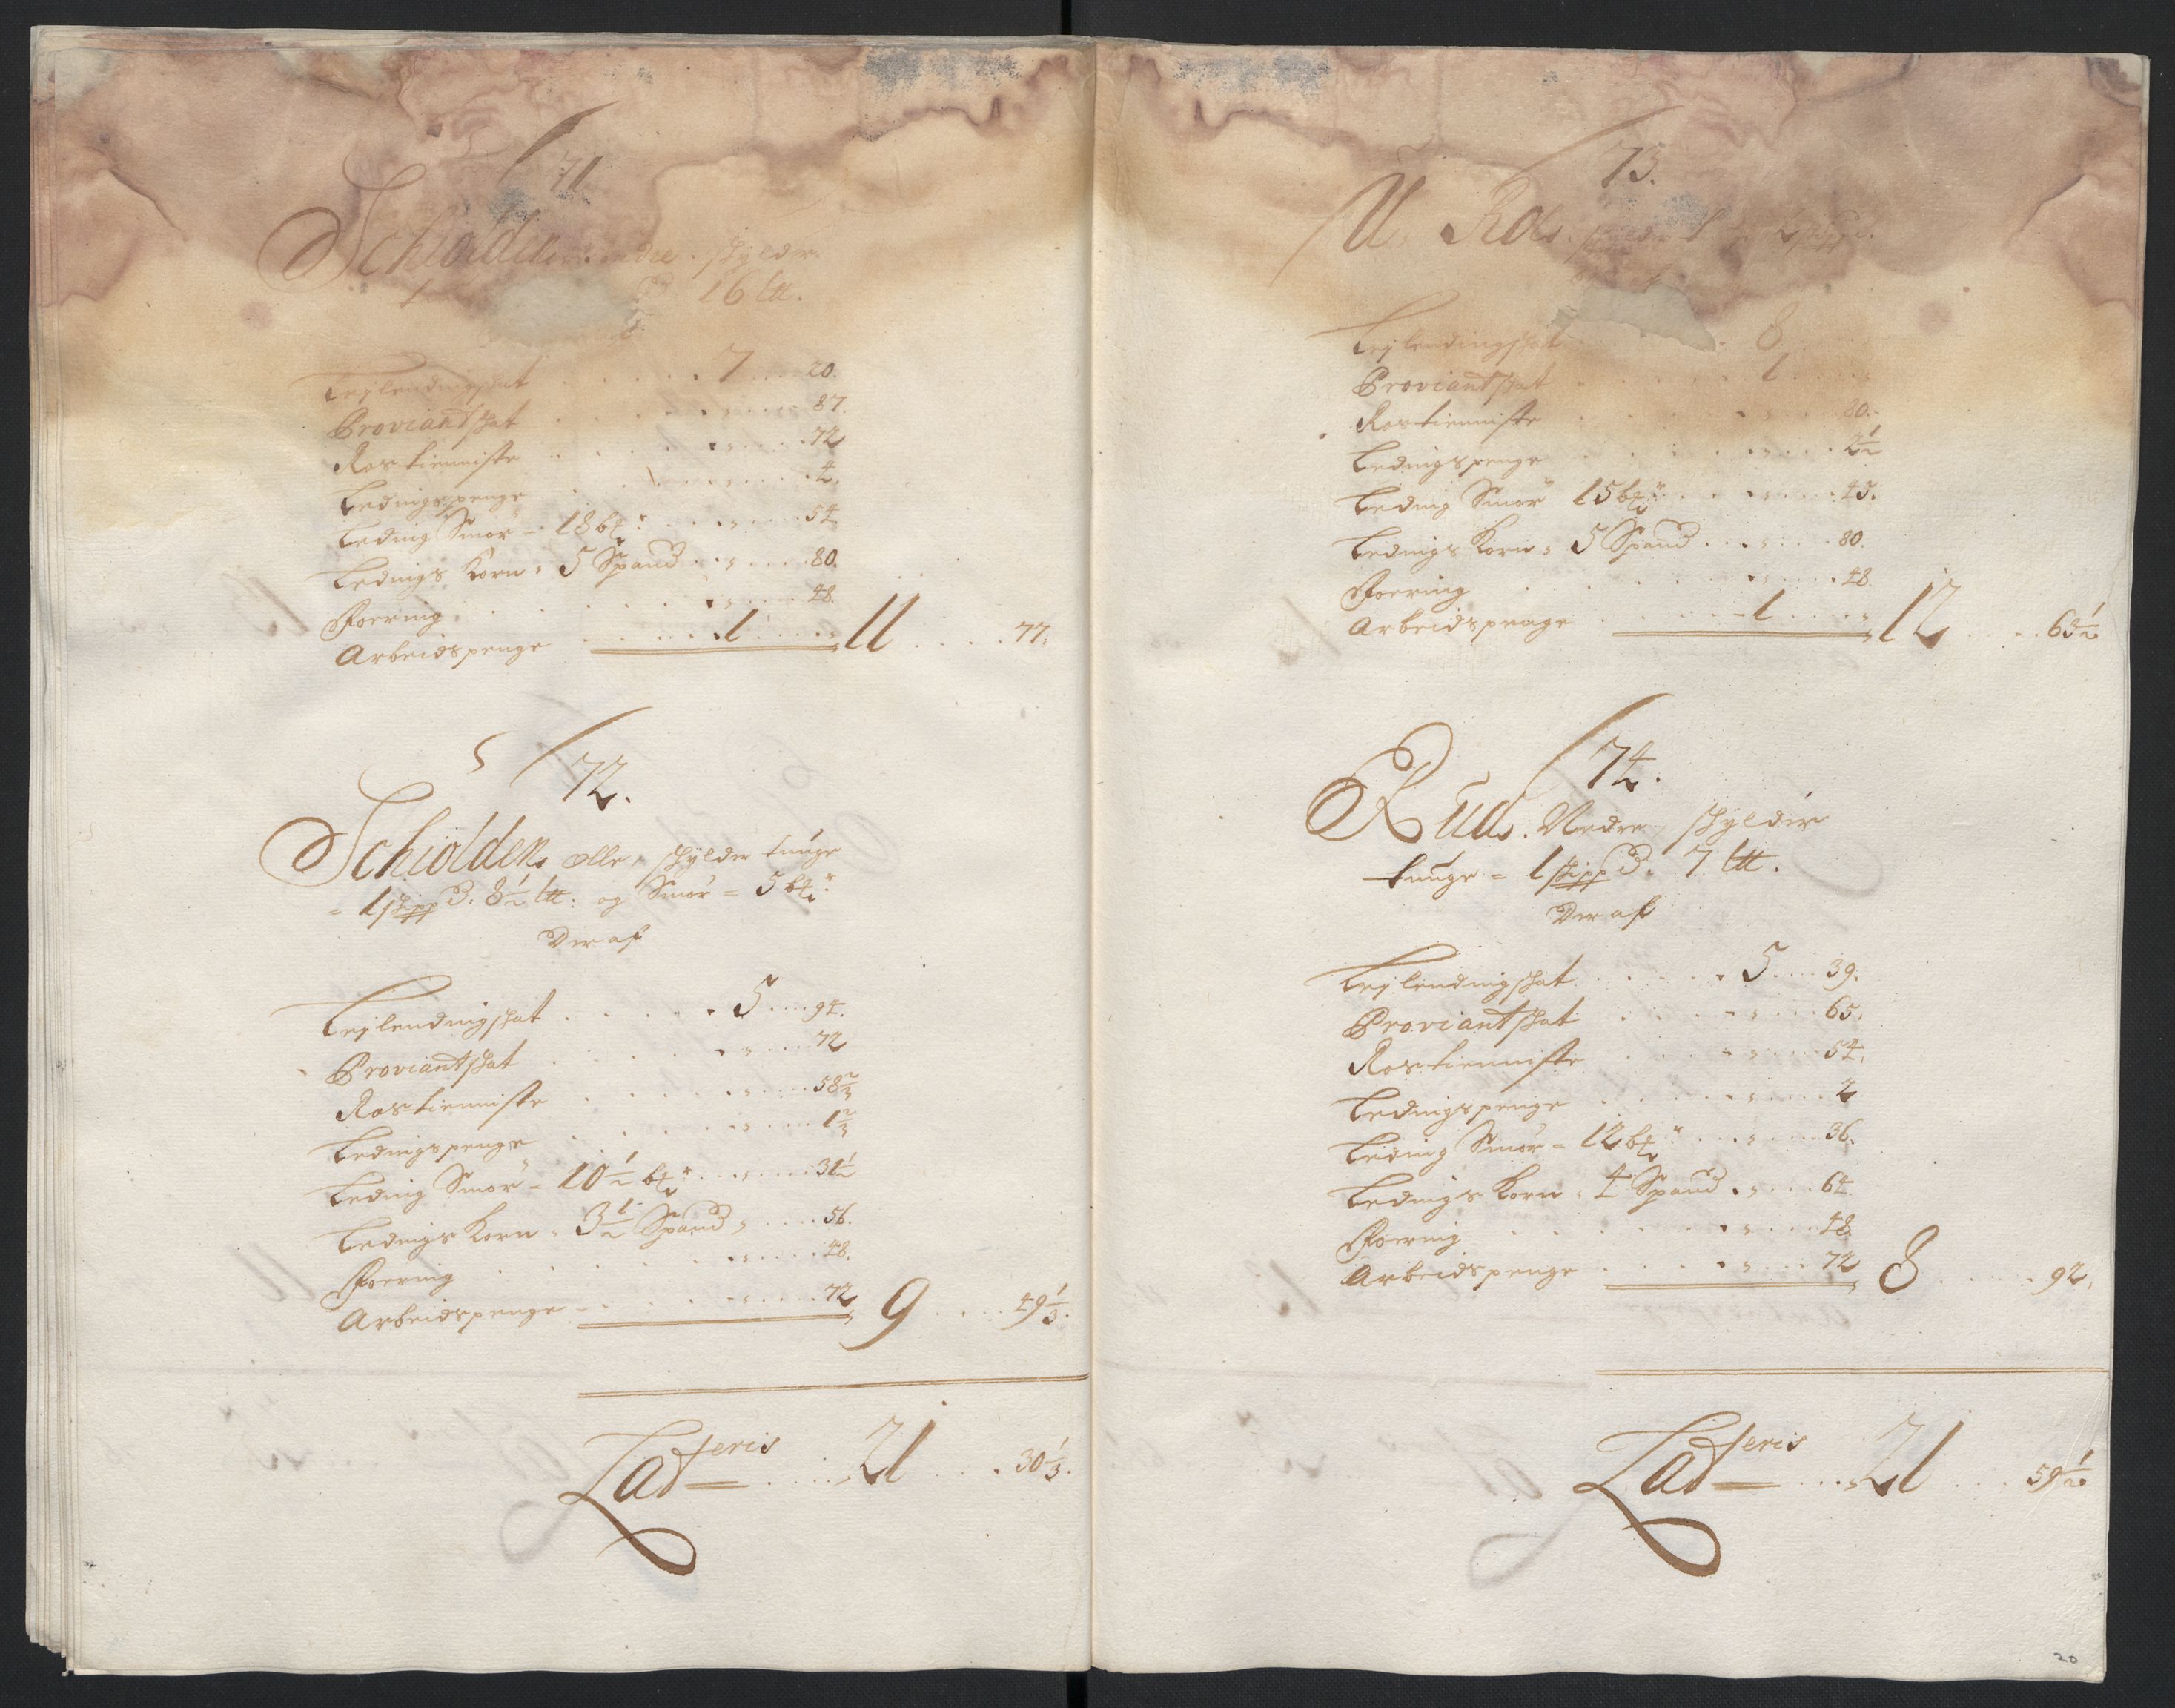 71.
Schiolden. skylder
16 ltt.
Leylendingschat . . . . . 7 . . . 20.
Proviantschat . . . . . " . . . 87.
Rostienniste . . . . . " . . . 72
Ledingspenge . . . . . " . . . 4.
Leding Smör = 18 btr: . . . " . . . 54
Ledings Korn = 5 Spand . . " . . . 80.
Foering . . . . . " . . . 48.
Arbeidspenge . . . . . 1 . . . " 11 . . . 77.
72.
Schiolden. ælle, skylder tunge
= 1 skippd. 8½ ltt: og Smör = 5 btr:
Deraf
Leylendingschat . . . . . 5 . . . 94.
Proviantschat . . . . . " . . . 72
Rostienniste . . . . . " . . . 58⅔
Ledingspenge . . . . . " . . . 1⅔
Leding Smör = 10½ btr . . . " . . . 31½
Ledings Korn = 3½ Spand " . . . 56.
Foering . . . . . " . . . 48.
Arbeidspenge . . . . . " . . . 72 9 . . . 49⅓.
Lateris . . . 21 . . . 30⅓.
73.
Leylendingschat . . . . . 8
Proviantschat . . . . . 1 . . . "
Rostienniste . . . . . " . . . 80.
Ledingspenge . . . . . " . . . 2½
Leding Smör 15 btr: . . . " . . . 45.
Ledings Korn = 5 Spand . . . " . . . 80.
Foering . . . . . " . . . 48.
Arbeidspenge . . . . . 1 . . . " 12 . . . 63½
74.
Rud. Nedre, skylder
tunge = 1 skippd. 7 ltt.
Deraf
Leylendingschat . . . . . 5 . . . 39.
Proviantschat . . . . . " . . . 65.
Rostienniste . . . . . " . . . 54.
Ledingspenge . . . . . " . . . 4
Leding Smör = 12 btr: . . . " . . . 36.
Ledings Korn = 4 Spand . " . . . 64.
Foering . . . . . " . . . 48.
Arbeidspenge . . . . . " . . . 72 8 . . . 92.
Lateris . . . 21 . . . 59½
20